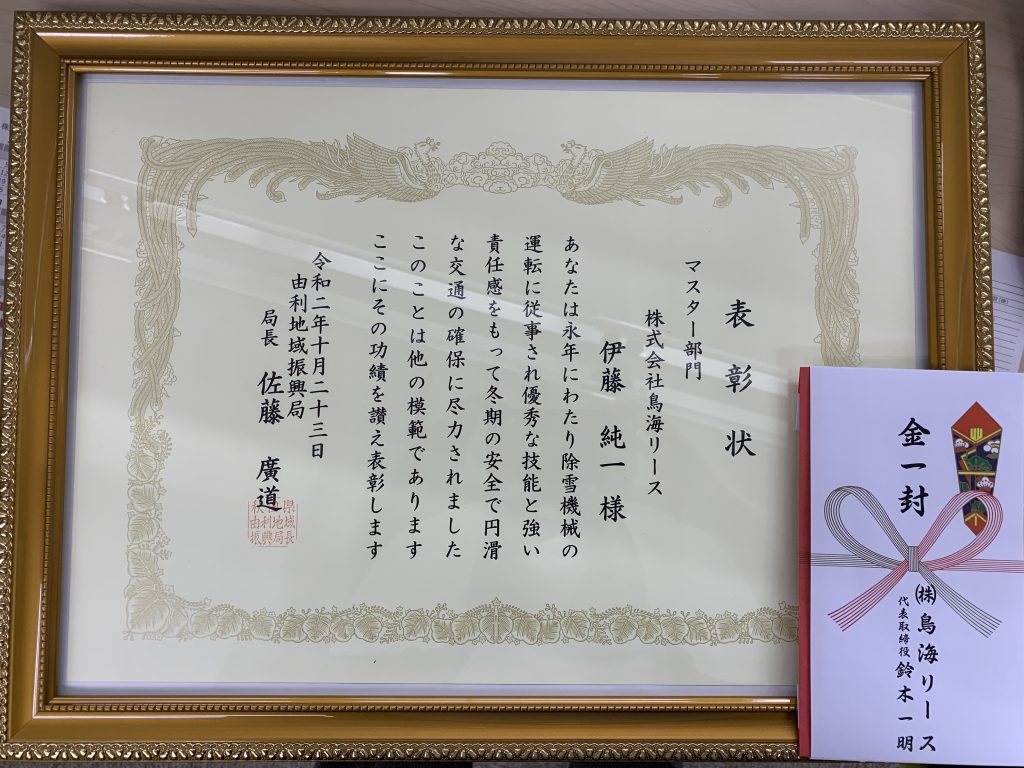 表彰状
マスター部門
株式会社鳥海リース
伊藤 純一 様
あなたは永年にわたり除雪機械の
運転に従事され優秀な技能と強い
責任感をもって冬期の安全で円滑
な交通の確保に尽力されました
このことは他の模範であります
ここにその功績を讃え表彰します
令和二年十月二十三日
由利地域振興局
局長 佐藤 廣道
県域長
利地局
由振興
金一封
㈱鳥海リース
代表取締役 鈴木一明